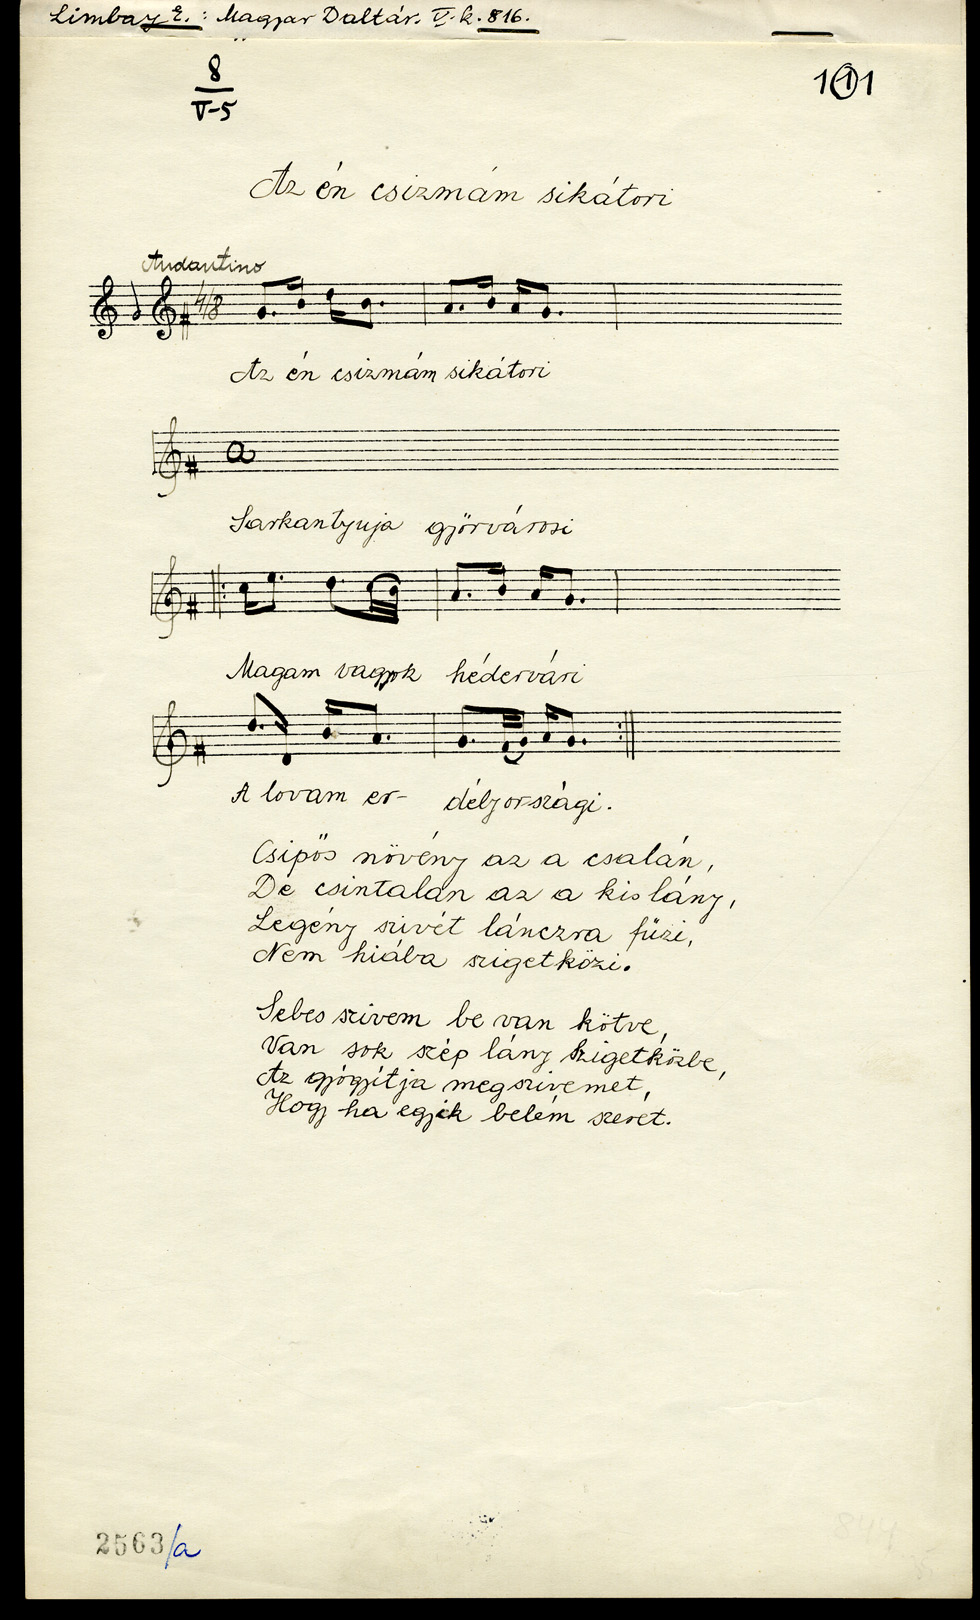 Limbay E.: Magyar Daltár. V. k. 816.
8
V-5
1 1 1
Az én csizmám sikátori
Andantino
4/8
Az én csizmám sikátori
a
Sarkantyuja győrvárosi
Magam vagyok hédervári
A lovam er- délyországi.
Csipős növény az a csalán,
De csintalan az a kis lány,
Legény szivét lánczra fűzi,
Nem hiába szigetközi.
Sebes szivem be van kötve,
Van sok szép lány Szigetközbe,
Az gyógyítja meg szivemet,
Hogy ha egyik belém szeret.
2563/a